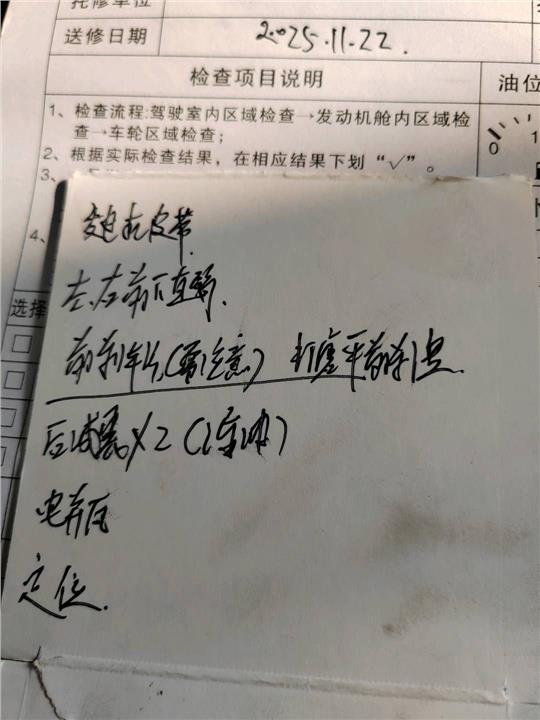 托修单位
送修日期 2025.11.22.
检查项目说明 油位
1、检查流程:驾驶室内区域检查→发动机舱内区域检
查→车轮区域检查;
2、根据实际检查结果,在相应结果下划“√”。
0
3、
4、
选择
发电机皮带.
左、右前下直臂.
前刹车片(需注意) 打磨平前刹
后减震X2(漏油)
电瓶
定位.